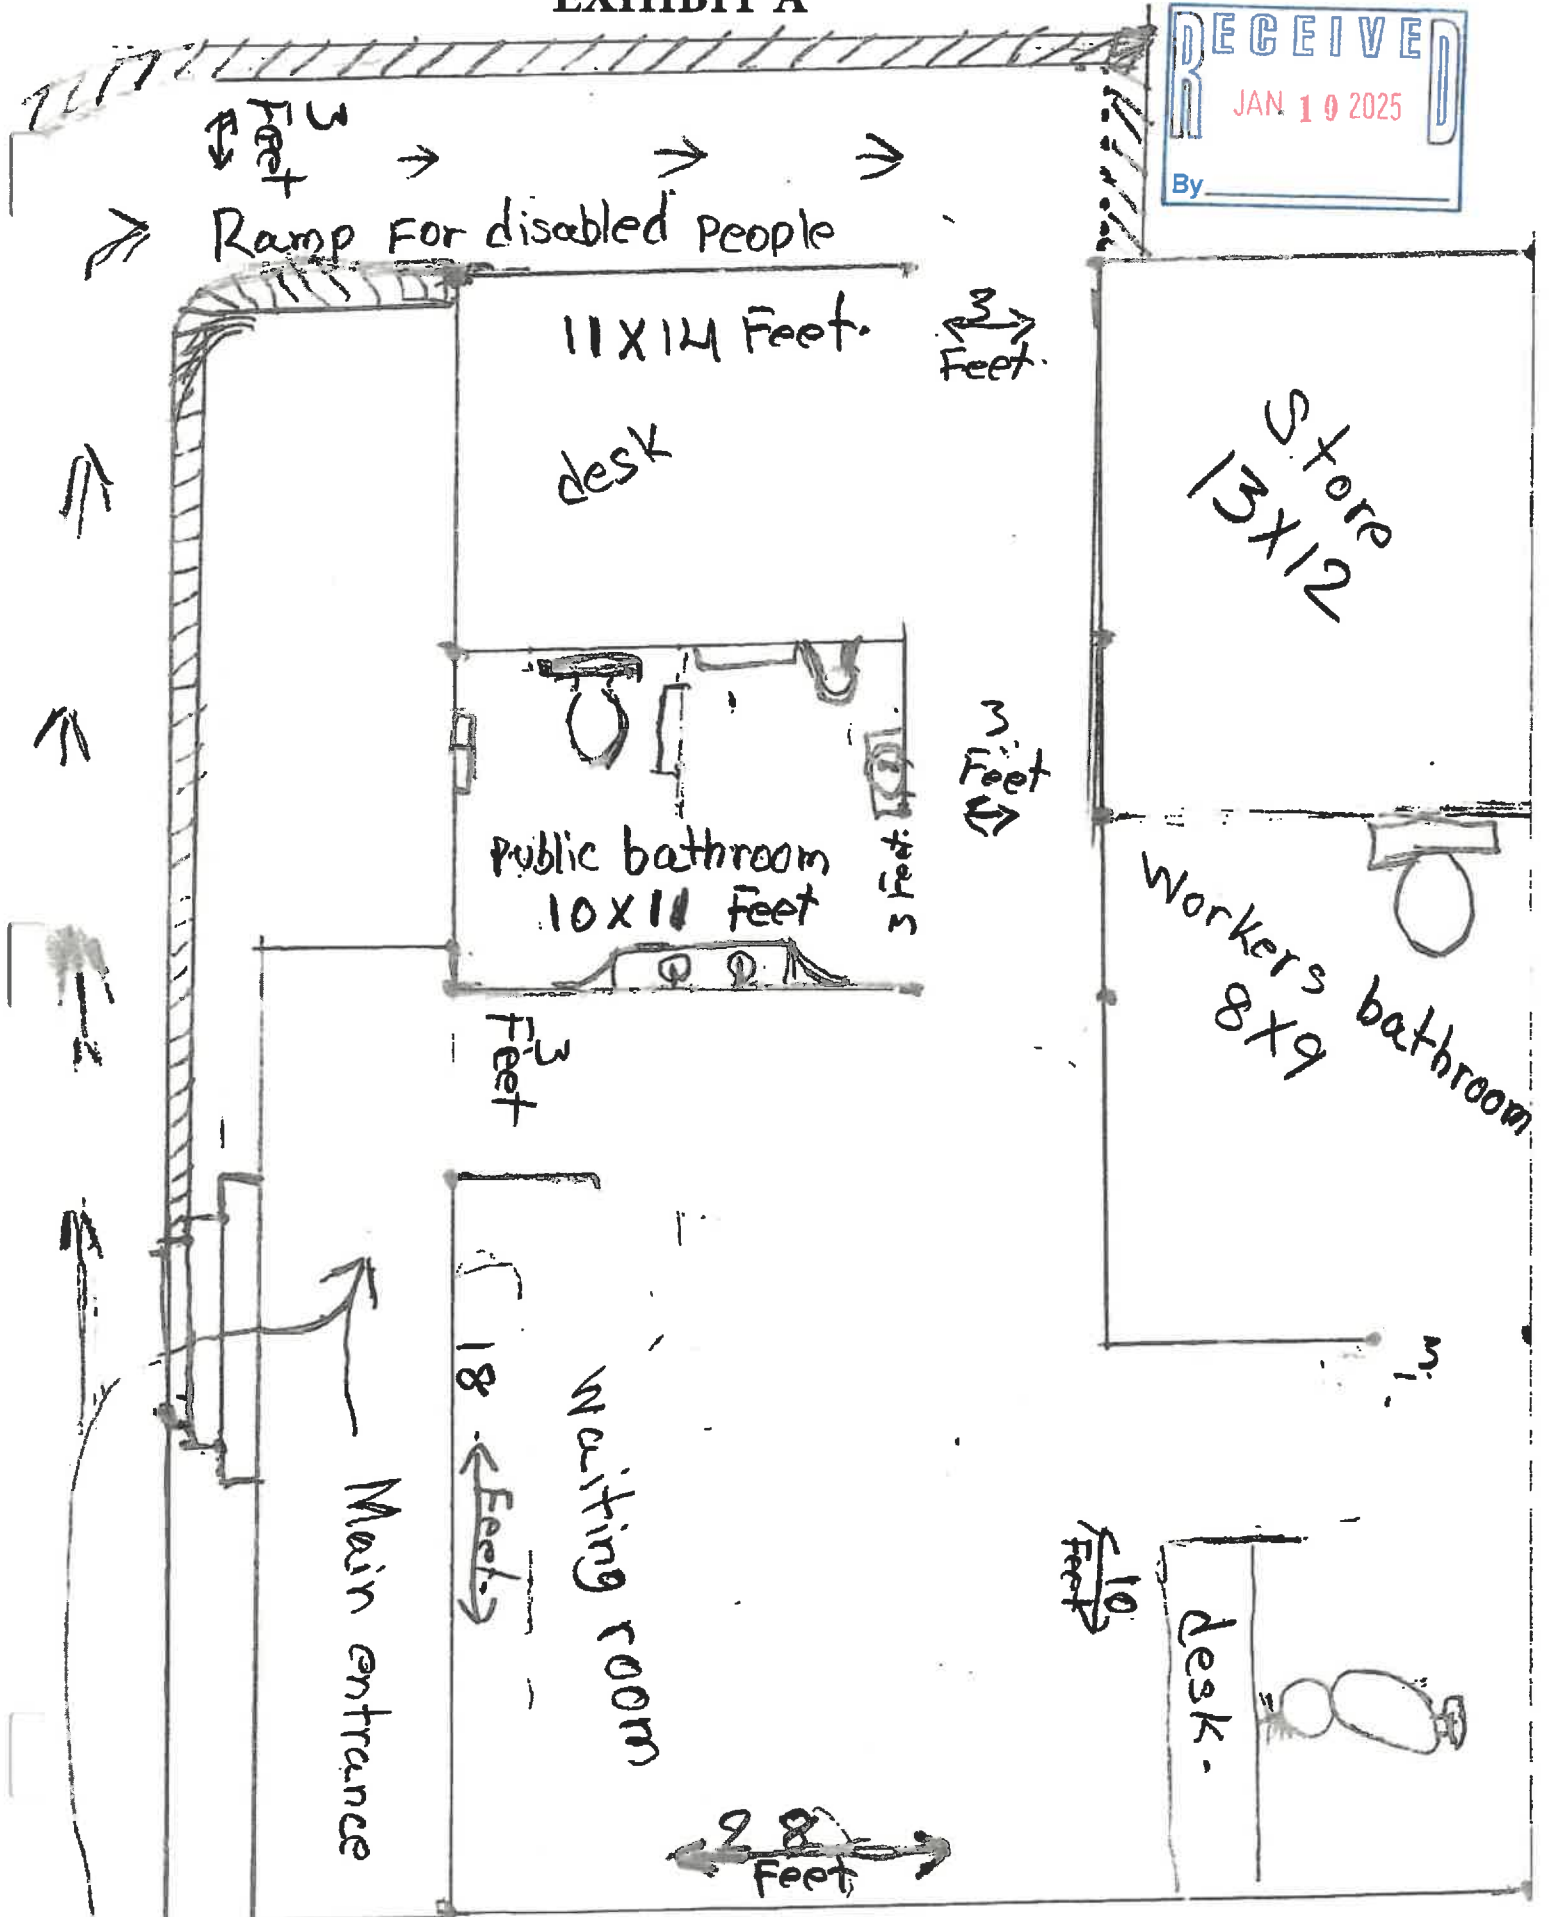 EXHIBIT A
RECEIVED
JAN 10 2025
By
3
Feet
Ramp For disabled People
11X14 Feet.
3
Feet.
desk
Store
13X12
3
Feet
Public bathroom
10X11 Feet
3 Feet.
Workers bathroom
8X9
3
Feet
3
18
Feet.
Waiting room
Main entrance
10
Feet
desk.
28
Feet